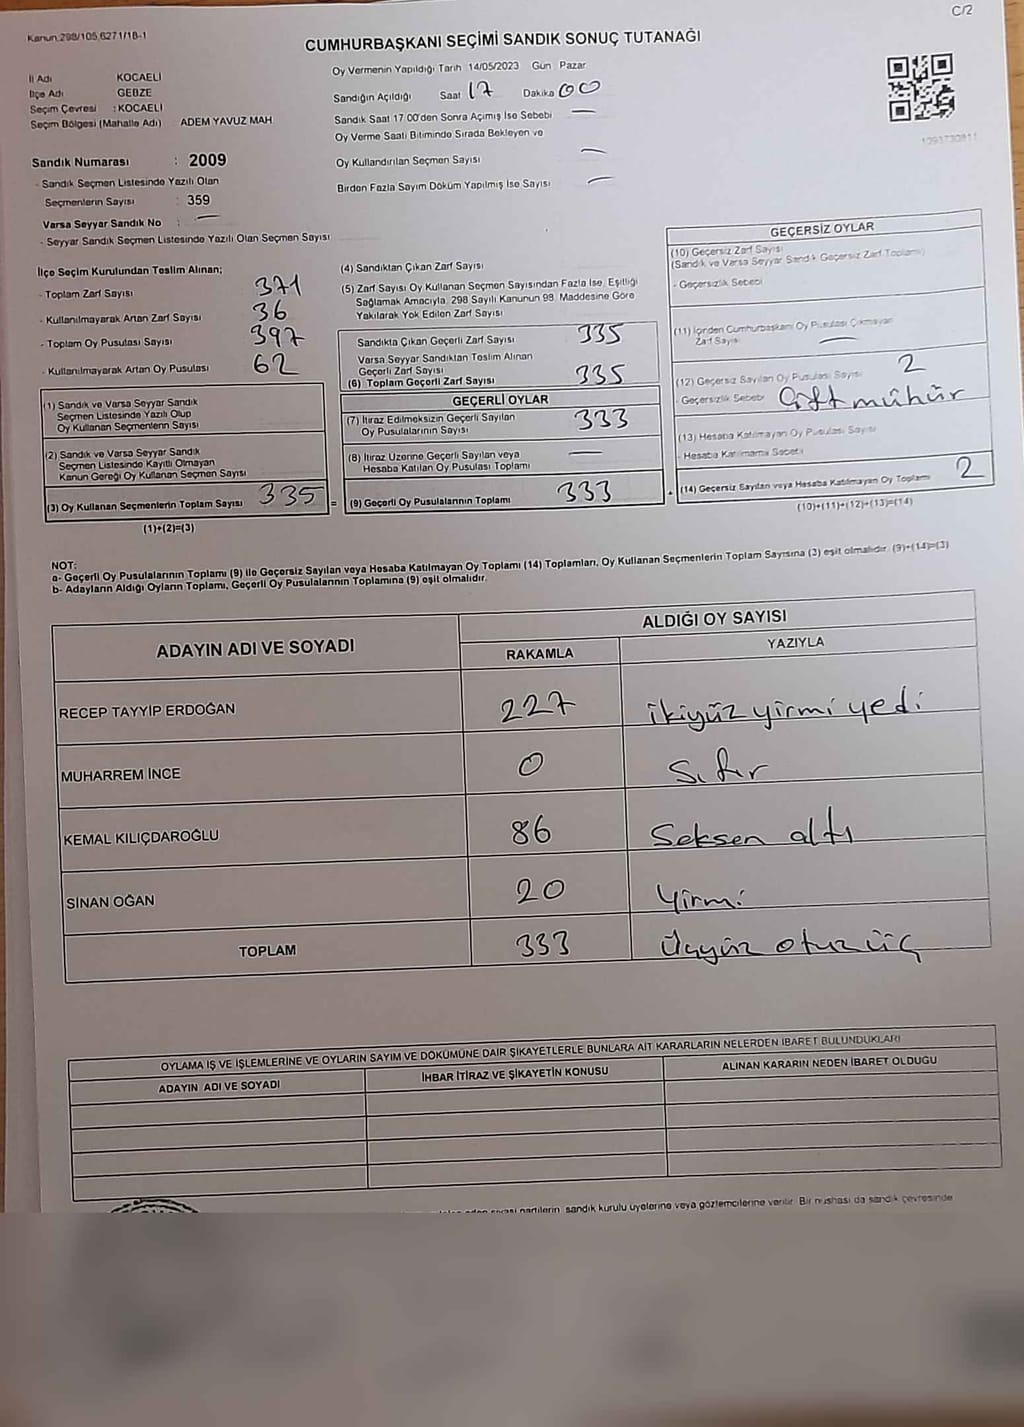 C/2
Kanun 298/105,6271/18-1
CUMHURBAŞKANI SEÇİMİ SANDIK SONUÇ TUTANAĞI
İl Adı KOCAELİ
İlçe Adı GEBZE
Seçim Çevresi : KOCAELİ
Seçim Bölgesi (Mahalle Adı) ADEM YAVUZ MAH.
Sandık Numarası : 2009
- Sandık Seçmen Listesinde Yazılı Olan
Seçmenlerin Sayısı : 359
Varsa Seyyar Sandık No : —
- Seyyar Sandık Seçmen Listesinde Yazılı Olan Seçmen Sayısı
Oy Vermenin Yapıldığı Tarih 14/05/2023 Gün Pazar
Sandığın Açıldığı Saat 17 Dakika 00
Sandık Saat 17 00'den Sonra Açılmış İse Sebebi —
Oy Verme Saati Bitiminde Sırada Bekleyen ve
Oy Kullandırılan Seçmen Sayısı —
Birden Fazla Sayım Döküm Yapılmış İse Sayısı —
1293730811
İlçe Seçim Kurulundan Teslim Alınan;
- Toplam Zarf Sayısı 371
- Kullanılmayarak Artan Zarf Sayısı 36
- Toplam Oy Pusulası Sayısı 397
- Kullanılmayarak Artan Oy Pusulası 62
(1) Sandık ve Varsa Seyyar Sandık
Seçmen Listesinde Yazılı Olup
Oy Kullanan Seçmenlerin Sayısı
(2) Sandık ve Varsa Seyyar Sandık
Seçmen Listesinde Kayıtlı Olmayan
Kanun Gereği Oy Kullanan Seçmen Sayısı
(3) Oy Kullanan Seçmenlerin Toplam Sayısı 335
(1)+(2)=(3)
(4) Sandıktan Çıkan Zarf Sayısı
(5) Zarf Sayısı Oy Kullanan Seçmen Sayısından Fazla İse, Eşitliği
Sağlamak Amacıyla, 298 Sayılı Kanunun 98. Maddesine Göre
Yakılarak Yok Edilen Zarf Sayısı
Sandıkta Çıkan Geçerli Zarf Sayısı 335
Varsa Seyyar Sandıktan Teslim Alınan
Geçerli Zarf Sayısı
(6) Toplam Geçerli Zarf Sayısı 335
GEÇERLİ OYLAR
(7) İtiraz Edilmeksizin Geçerli Sayılan
Oy Pusulalarının Sayısı 333
(8) İtiraz Üzerine Geçerli Sayılan veya
Hesaba Katılan Oy Pusulası Toplamı —
= (9) Geçerli Oy Pusulalarının Toplamı 333
GEÇERSİZ OYLAR
(10) Geçersiz Zarf Sayısı
(Sandık ve Varsa Seyyar Sandık Geçersiz Zarf Toplamı)
- Geçersizlik Sebebi
(11) İçinden Cumhurbaşkanı Oy Pusulası Çıkmayan
Zarf Sayısı —
(12) Geçersiz Sayılan Oy Pusulası Sayısı 2
- Geçersizlik Sebebi Çift mühür
(13) Hesaba Katılmayan Oy Pusulası Sayısı
- Hesaba Katılmama Sebebi
+ (14) Geçersiz Sayılan veya Hesaba Katılmayan Oy Toplamı 2
(10)+(11)+(12)+(13)=(14)
NOT:
a- Geçerli Oy Pusulalarının Toplamı (9) ile Geçersiz Sayılan veya Hesaba Katılmayan Oy Toplamı (14) Toplamları, Oy Kullanan Seçmenlerin Toplam Sayısına (3) eşit olmalıdır. (9)+(14)=(3)
b- Adayların Aldığı Oyların Toplamı, Geçerli Oy Pusulalarının Toplamına (9) eşit olmalıdır.
ADAYIN ADI VE SOYADI ALDIĞI OY SAYISI
RAKAMLA YAZIYLA
RECEP TAYYİP ERDOĞAN 227 ikiyüz yirmi yedi
MUHARREM İNCE 0 Sıfır
KEMAL KILIÇDAROĞLU 86 Seksen altı
SİNAN OĞAN 20 Yirmi
TOPLAM 333 Üçyüz otuz üç
OYLAMA İŞ VE İŞLEMLERİNE VE OYLARIN SAYIM VE DÖKÜMÜNE DAİR ŞİKAYETLERLE BUNLARA AİT KARARLARIN NELERDEN İBARET BULUNDUKLARI
ADAYIN ADI VE SOYADI İHBAR İTİRAZ VE ŞİKAYETİN KONUSU ALINAN KARARIN NEDEN İBARET OLDUĞU
partilerin sandık kurulu üyelerine veya gözlemcilerine verilir. Bir nüshası da sandık çevresinde